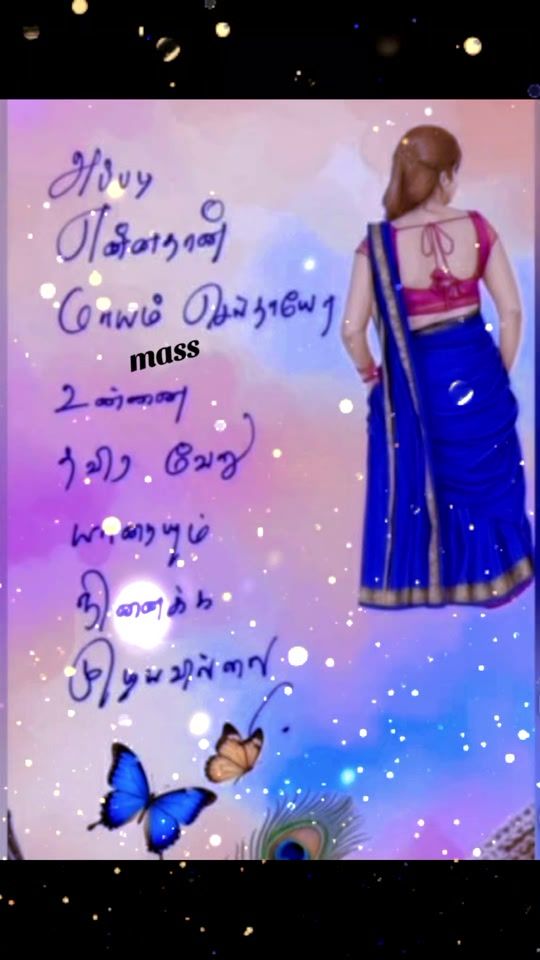 அப்படி
என்னதான்
மாயம் செய்தாயோ
mass
உன்னை
தவிர வேறு
யாரையும்
நினைக்க
முடியவில்லை